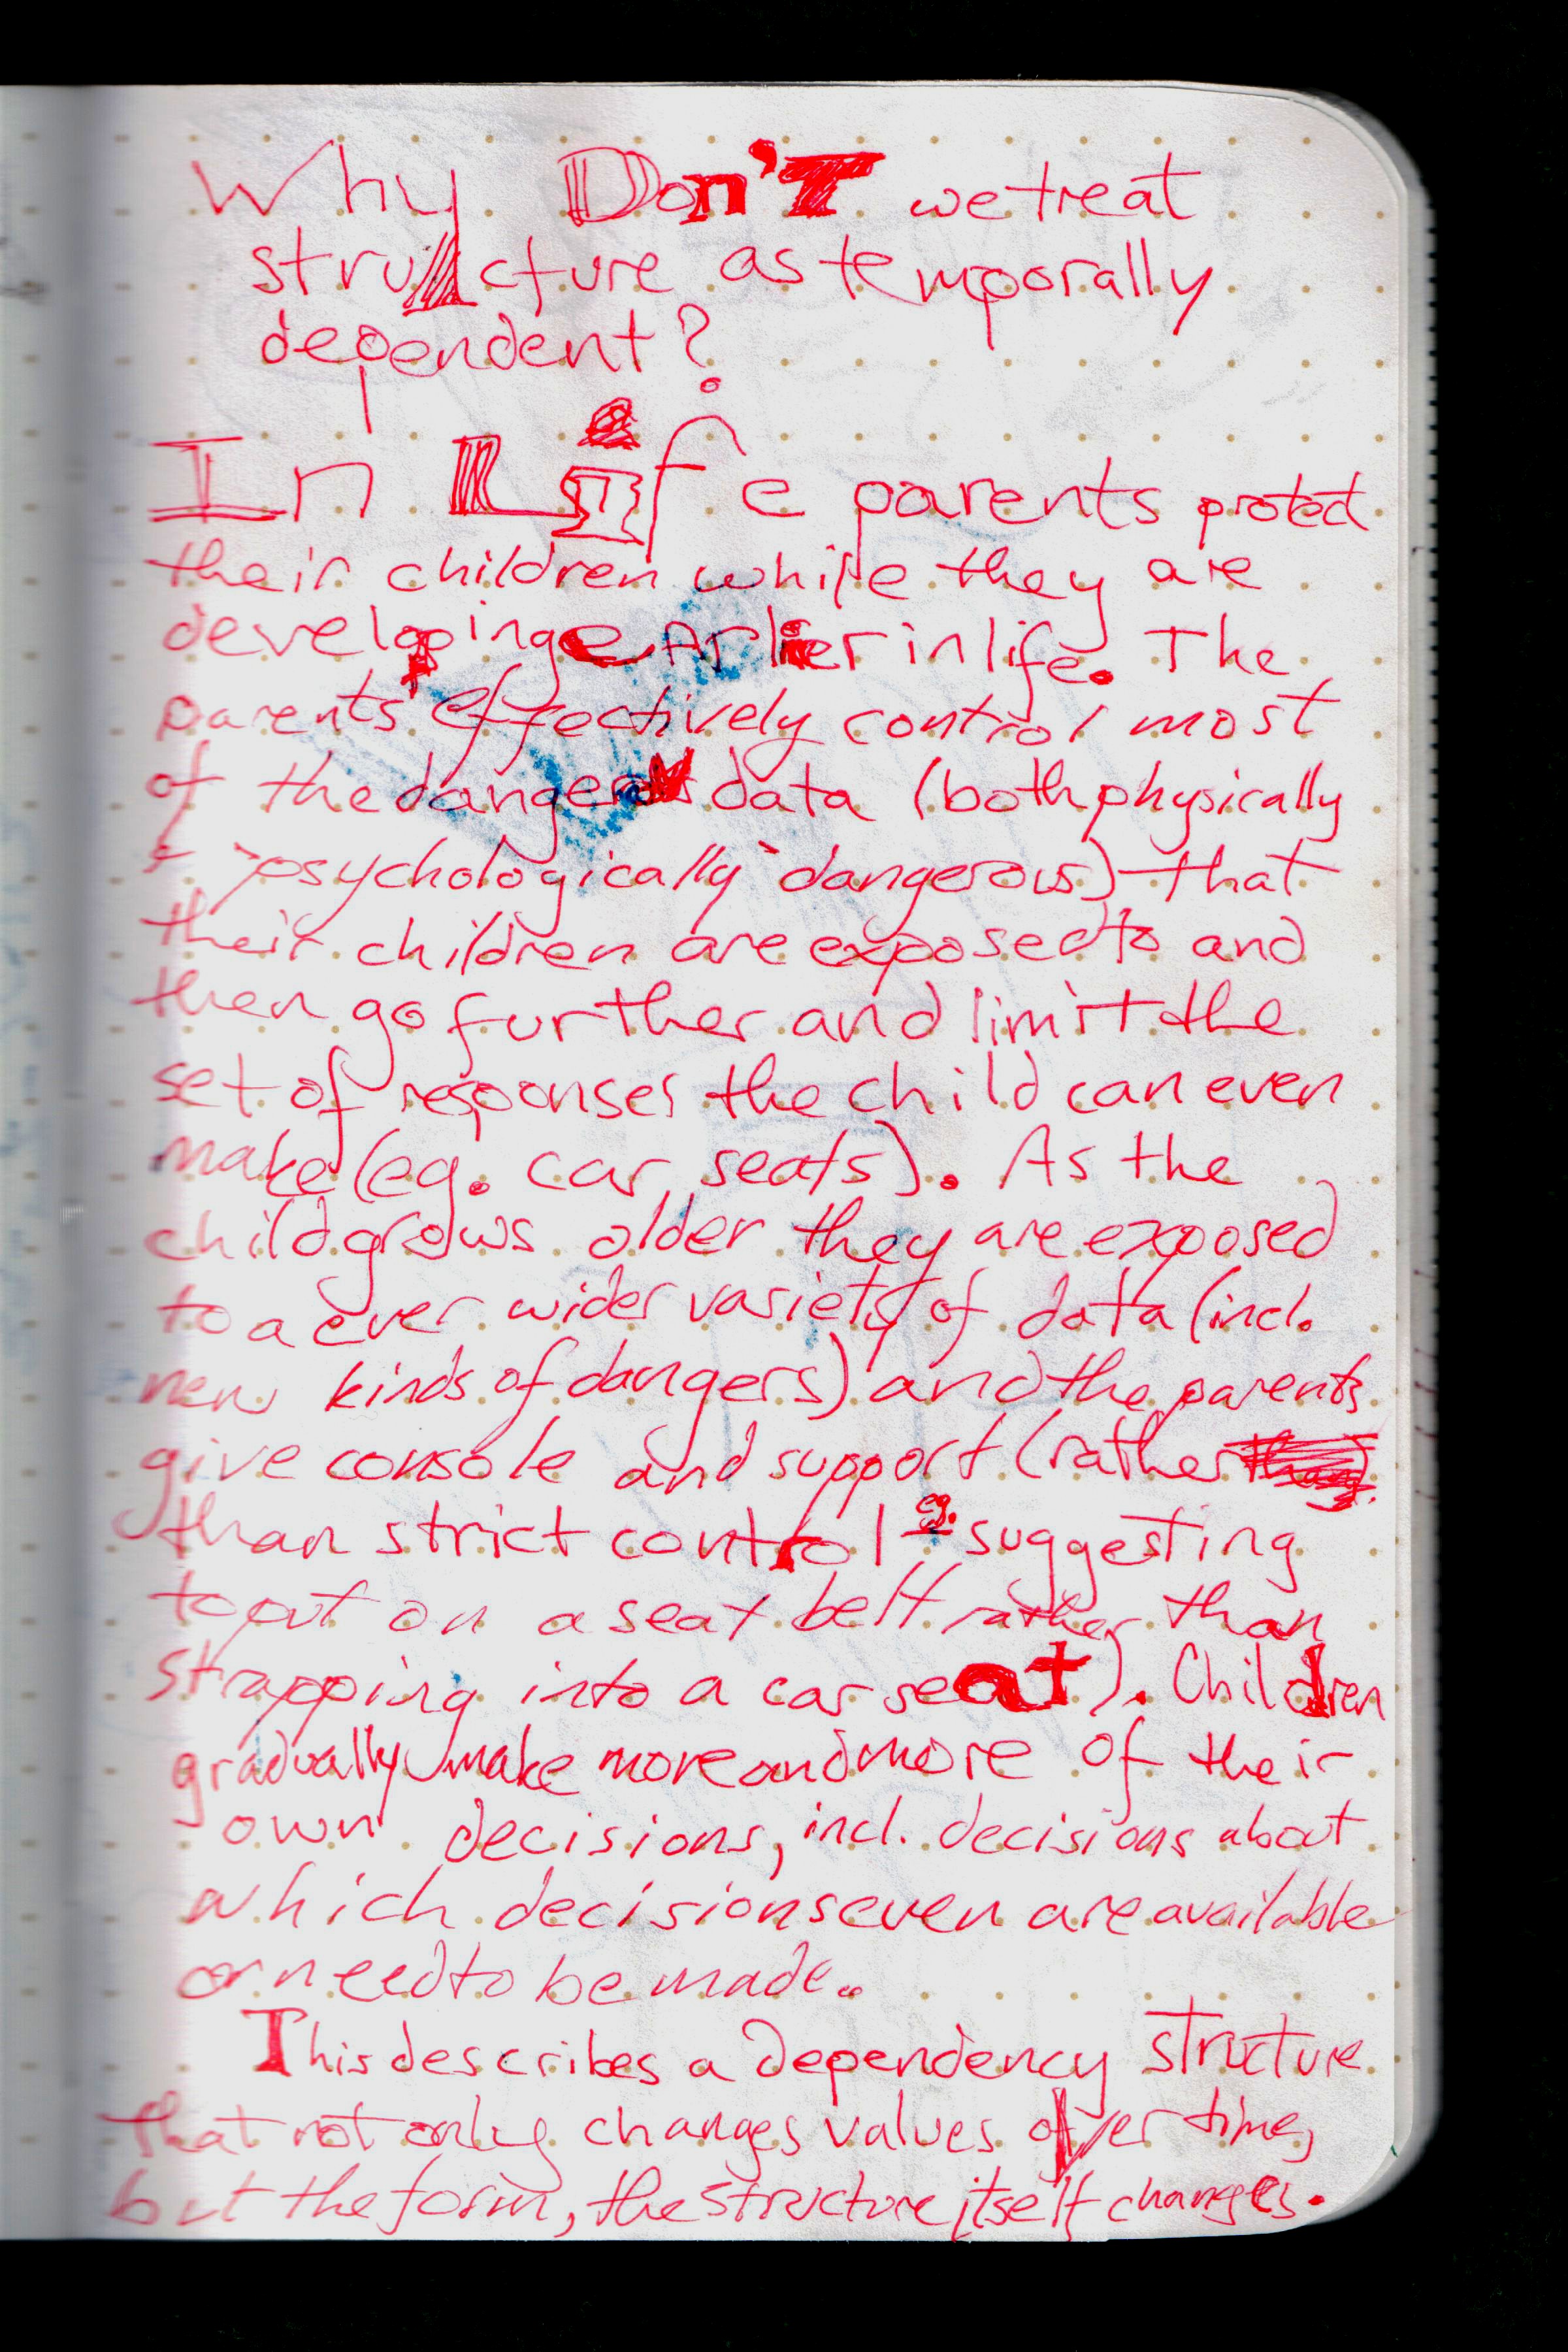 Why Don't we treat
structure as temporally
dependent?
In Life parents protect
their children while they are
developing earlier in life. The
parents effectively control most
of the dangerous data (both physically
& psychologically dangerous) that
their children are exposed to and
then go further and limit the
set of responses the child can even
make (eg. car seats). As the
child grows older they are exposed
to a ever wider variety of data (incl.
new kinds of dangers) and the parents
give console and support (rather
than strict control eg. suggesting
to put on a seat belt rather than
strapping into a car seat). Children
gradually make more and more of their
own decisions, incl. decisions about
which decisions even are available
or need to be made.
This describes a dependency structure
that not only changes values over time,
but the form, the structure itself changes.